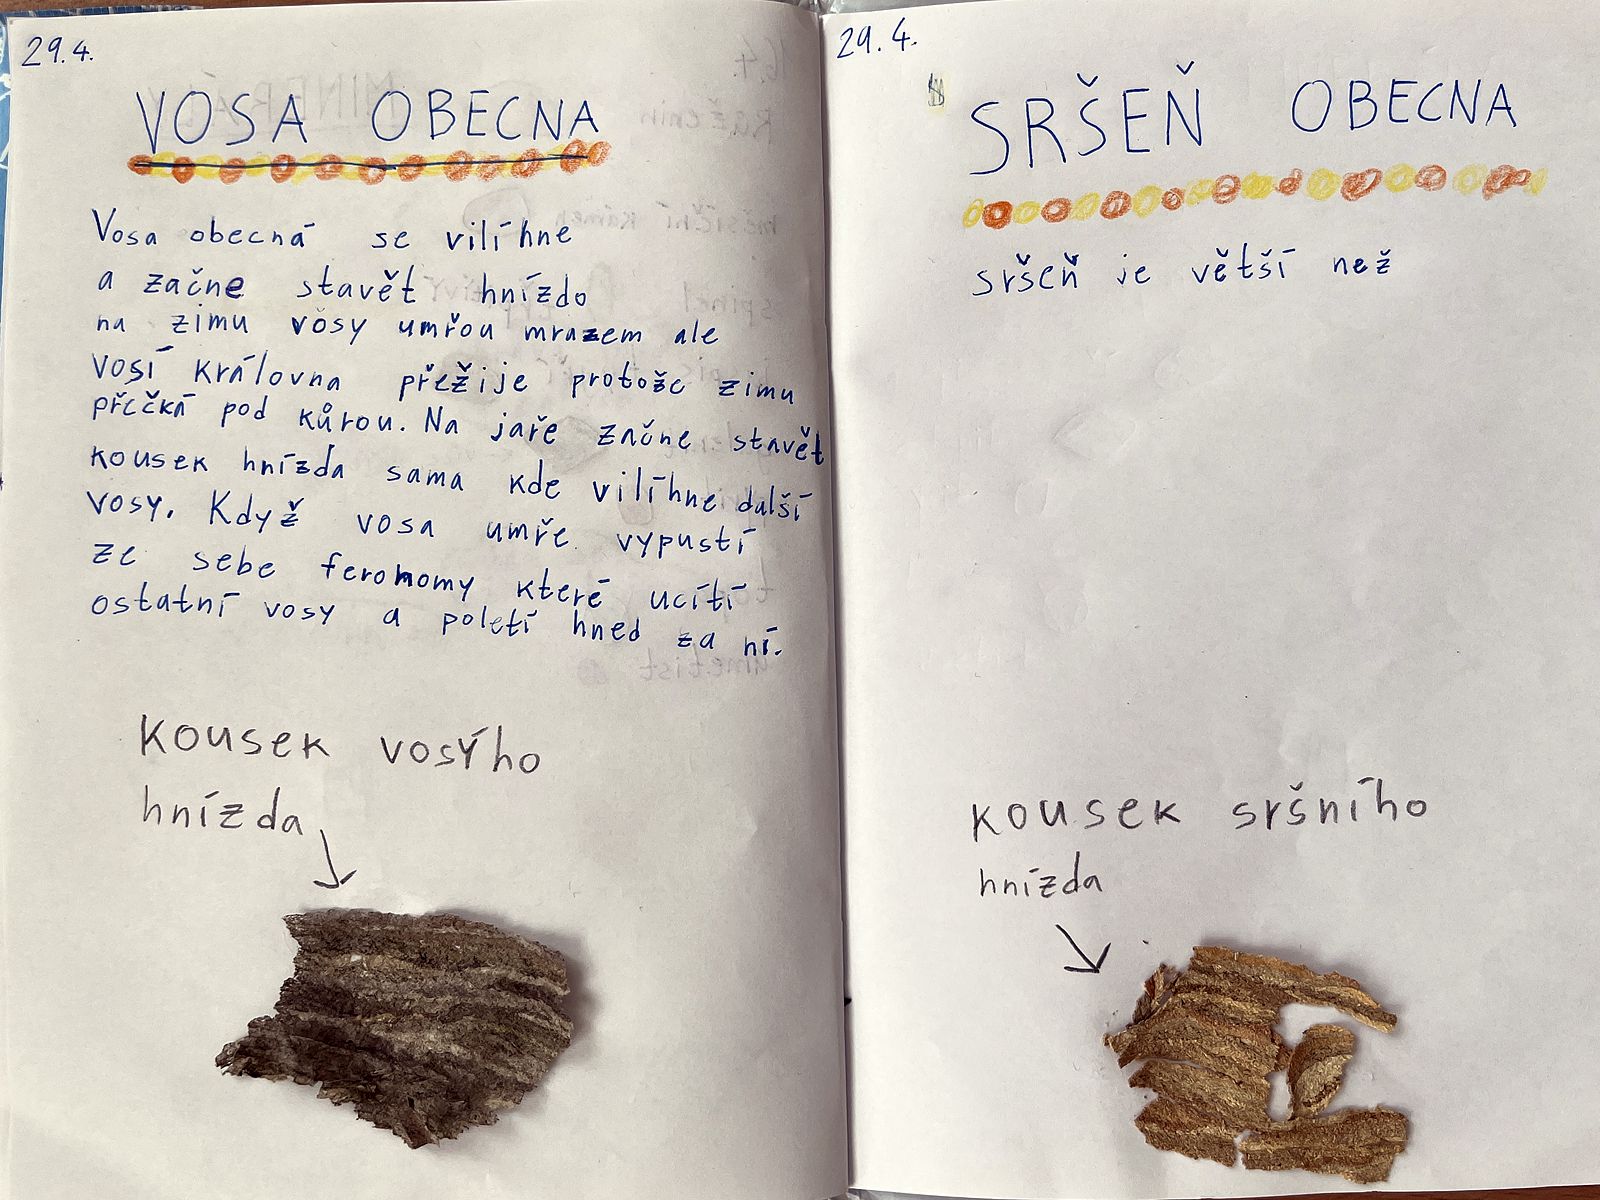 29.4.
VOSA OBECNA
Vosa obecná se vilíhne
a začne stavět hnízdo
na zimu vosy umřou mrazem ale
vosí královna přežije protože zimu
přečká pod kůrou. Na jaře začne stavět
kousek hnízda sama kde vilíhne další
vosy. Když vosa umře vypustí
ze sebe feromomy které ucítí
ostatní vosy a poletí hned za ní.
kousek vosýho
hnízda
29.4.
SRŠEŇ OBECNA
sršeň je větší než
kousek sršního
hnízda